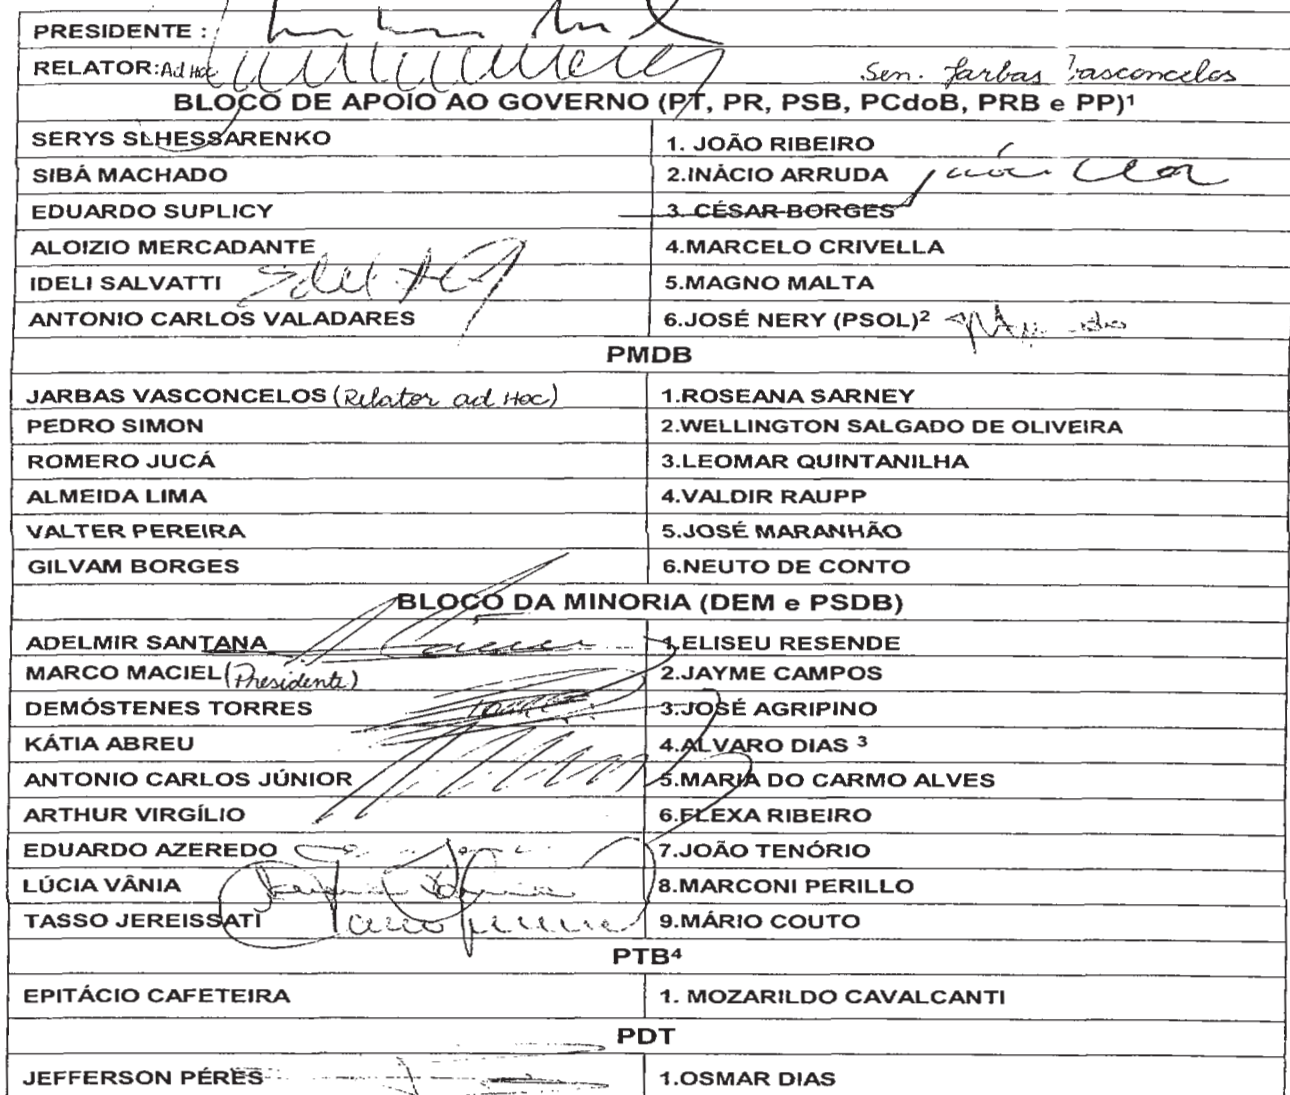 PRESIDENTE :
RELATOR: Ad Hoc Sen. Jarbas Vasconcelos
BLOCO DE APOIO AO GOVERNO (PT, PR, PSB, PCdoB, PRB e PP)¹
SERYS SLHESSARENKO 1. JOÃO RIBEIRO
SIBÁ MACHADO 2.INÁCIO ARRUDA
EDUARDO SUPLICY 3. CÉSAR BORGES
ALOIZIO MERCADANTE 4.MARCELO CRIVELLA
IDELI SALVATTI 5.MAGNO MALTA
ANTONIO CARLOS VALADARES 6.JOSÉ NERY (PSOL)²
PMDB
JARBAS VASCONCELOS (Relator ad Hoc) 1.ROSEANA SARNEY
PEDRO SIMON 2.WELLINGTON SALGADO DE OLIVEIRA
ROMERO JUCÁ 3.LEOMAR QUINTANILHA
ALMEIDA LIMA 4.VALDIR RAUPP
VALTER PEREIRA 5.JOSÉ MARANHÃO
GILVAM BORGES 6.NEUTO DE CONTO
BLOCO DA MINORIA (DEM e PSDB)
ADELMIR SANTANA 1.ELISEU RESENDE
MARCO MACIEL (Presidente) 2.JAYME CAMPOS
DEMÓSTENES TORRES 3.JOSÉ AGRIPINO
KÁTIA ABREU 4.ALVARO DIAS ³
ANTONIO CARLOS JÚNIOR 5.MARIA DO CARMO ALVES
ARTHUR VIRGÍLIO 6.FLEXA RIBEIRO
EDUARDO AZEREDO 7.JOÃO TENÓRIO
LÚCIA VÂNIA 8.MARCONI PERILLO
TASSO JEREISSATI 9.MÁRIO COUTO
PTB⁴
EPITÁCIO CAFETEIRA 1. MOZARILDO CAVALCANTI
PDT
JEFFERSON PÉRES 1.OSMAR DIAS